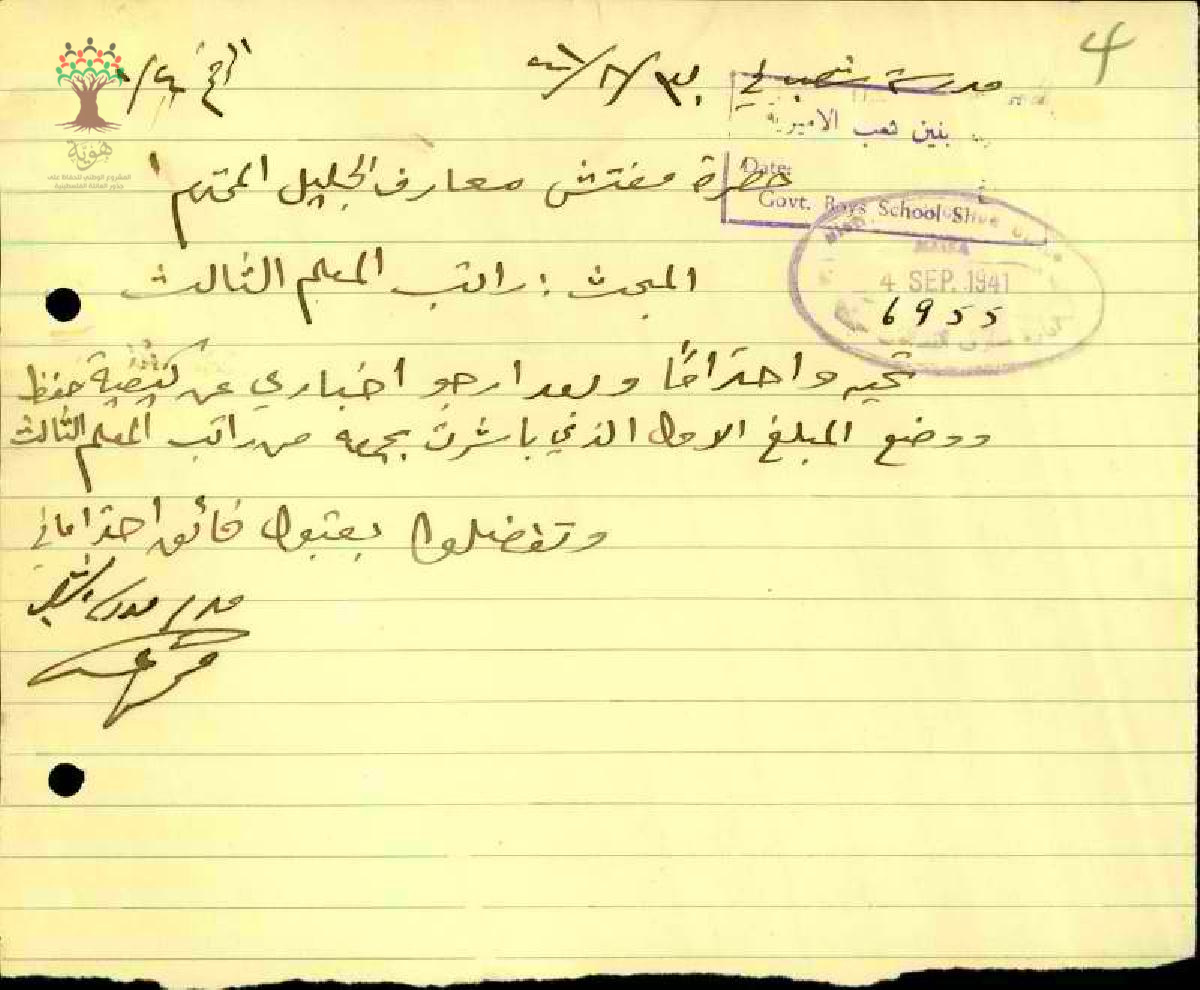 4
مدرسة شعب في ٣٠/٨/٤١
بنين شعب الاميرية
Date:
Govt. Boys School Sh
حضرة مفتش معارف الجليل المحترم
4 SEP. 1941
6955
المبحث : راتب المعلم الثالث
تحية واحترامًا وبعد ارجو اخباري عن كيفية حفظ
ووضع المبلغ الاول الذي باشرت بجمعه من راتب المعلم الثالث
وتفضلوا بقبول فائق احتراماتي
مدير مدرسة شعب
هوية
المشروع الوطني للحفاظ على
جذور العائلة الفلسطينية